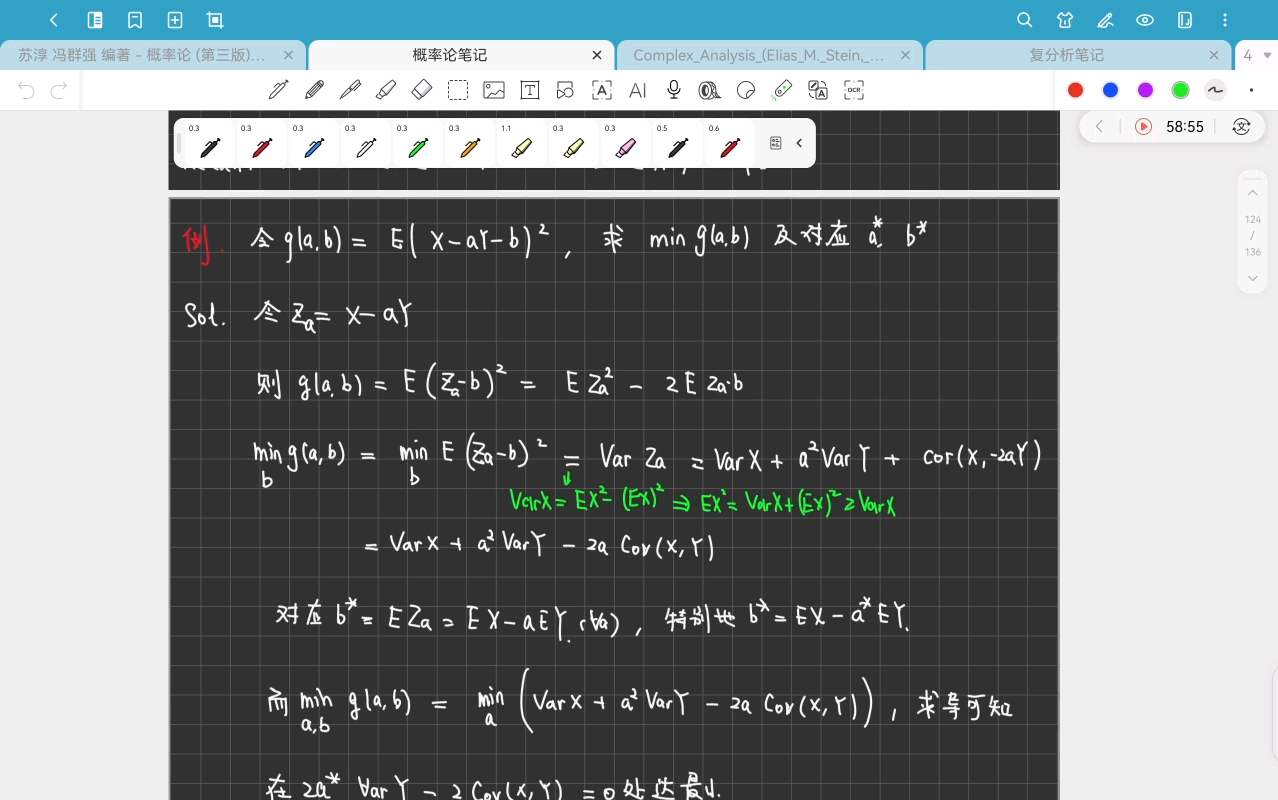 苏淳 冯群强 编著 - 概率论 (第三版)...
概率论笔记
Complex_Analysis_(Elias_M._Stein,_...
复分析笔记
4
58:55
0.3 0.3 0.3 0.3 0.3 0.3 1.1 0.3 0.3 0.5 0.6
124
/
136
例. 令 g(a,b) = E(X-aY-b)², 求 min g(a,b) 及对应 a*, b*
Sol. 令 Zₐ = X-aY
则 g(a,b) = E(Zₐ-b)² = EZₐ² - 2EZₐ·b
min_b g(a,b) = min_b E(Zₐ-b)² = Var Zₐ = VarX + a²VarY + cor(X,-2aY)
VarX = EX² - (EX)² ⇒ EX² = VarX + (EX)² ≥ VarX
= VarX + a²VarY - 2a Cov(X,Y)
对应 b* = EZₐ = EX-aEY. (∀a), 特别地 b* = EX-a*EY.
而 min_{a,b} g(a,b) = min_a (VarX + a²VarY - 2a Cov(X,Y)), 求导可知
在 2a* VarY - 2 Cov(X,Y) = 0 处达最小.